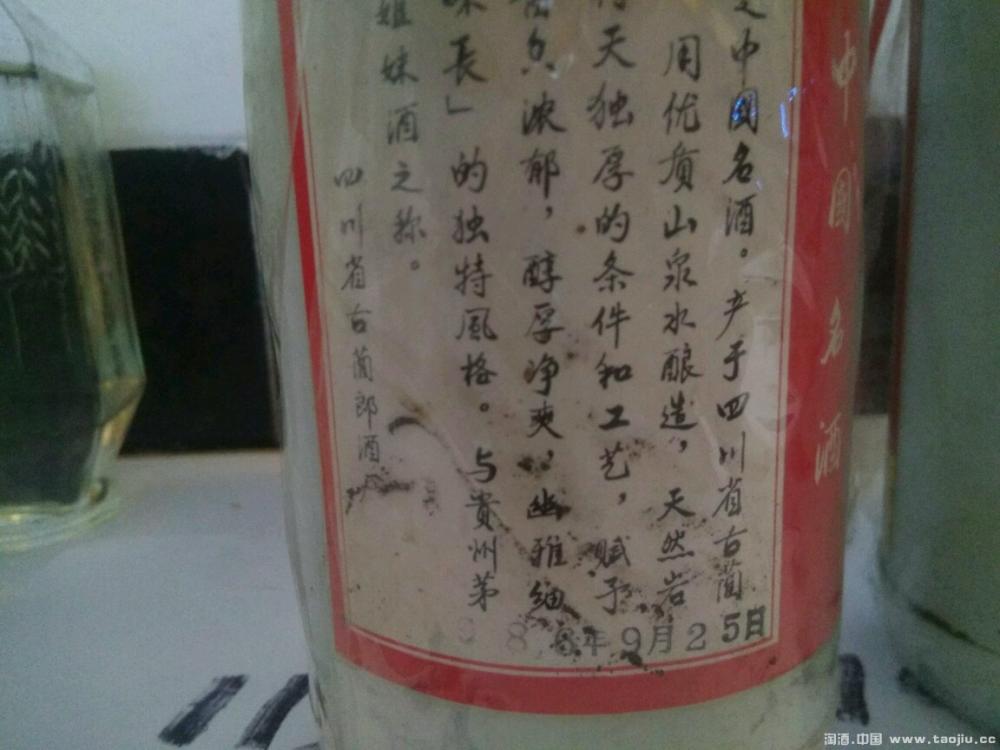 中國名酒
中國名酒。产于四川省古蔺
用优质山泉水酿造，天然岩
天独厚的条件和工艺，赋予
浓郁，醇厚净爽，幽雅细
味長」的独特風格。与贵州茅
姐妹酒之称。
四川省古蔺郎酒
986年9月25日
淘酒.中国 www.taojiu.cc